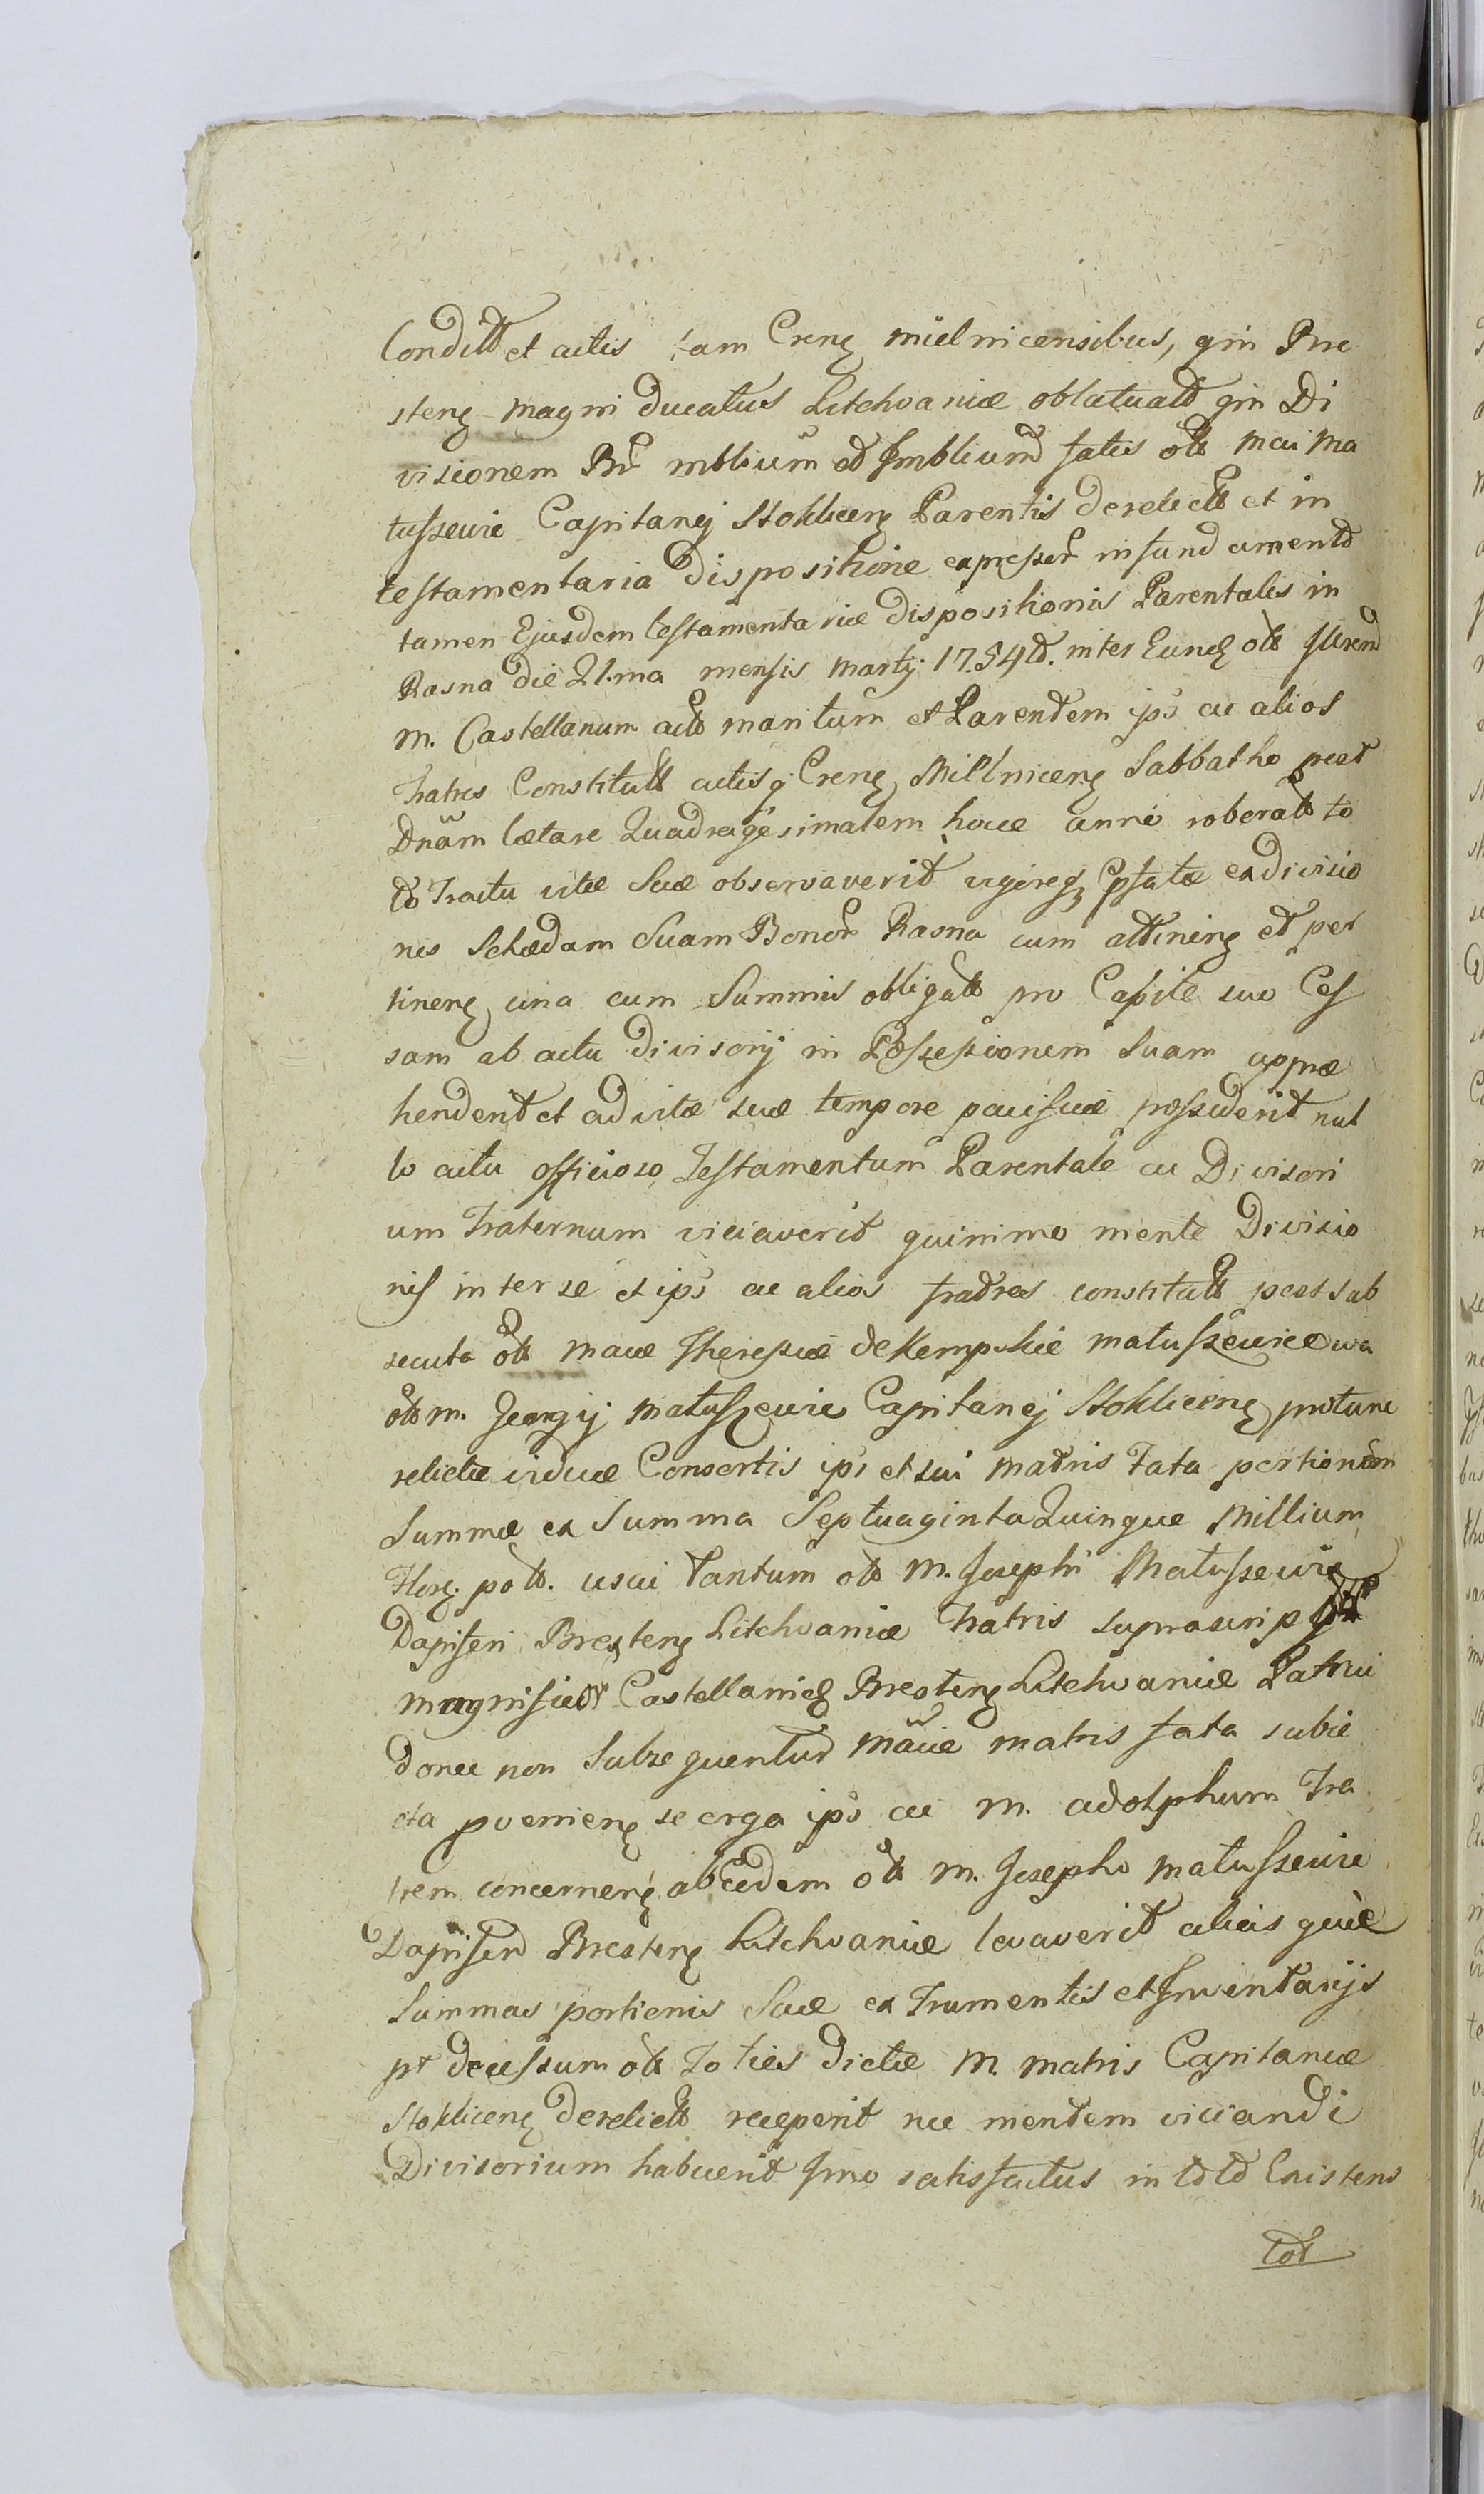 Conditt et actis tam Crenꝫ mielnicensibus, qm̃ Bre
stenꝫ magni ducatus Litchvaniæ oblatuatt qm̃ Di
visionem Br̃ mblium et Jmblium fatis ott mci Ma
tuszewic Capitanej Stokliceñ Parentis derelictt et in
testamentaria dispositione expresser̃ in fundamento
tamen Ejusdem testamentariæ dispositionis Parentalis in
Rasna die 21.ma mensis martij 17.54tð. inter Eundꝫ ott
M. Castellanum actt maritum et Parentem ips̃ ac alios
Fratres Constitutt actisqꝫ Crenꝫ Millnicenꝫ Sabbatho post
Dnãm lætare Quadragesimalem hocce anni roboratt to
to Tractu vitæ Suæ observaverit vigoreqꝫ Ejusdem exdivisio
nis Schædam Suam Bonor̃ Rasna cum attinenꝫ et per
tinenꝫ una cum Summis obligatt pro Capite suo Ces
sam ab actu divisorij in Possessionem Suam appræ
henderit et ad vitæ suæ tempore pacifice possiderit nul
lo actu officioso Testamentum Parentale ac Divisori
um Fraternum viciaverit quinimo mente Divisio
nis inter se et ips̃ ac alios fratres constitutt post sub
secuta ott macæ Theresiæ de Kempskie matuszewicowa
ott m. Georgij matuszewic Capitanej Stoklicenꝫ protunc
relictæ viduæ Consortis ips̃ et sui matris Fata portionem
Summæ ex Summa Septuaginta Quinque Millium
Florꝫ. pott. usui tantum ott M. Josephi Matuszewic
Dapiferi Brestenꝫ Litchvaniæ Fratris suprascrip
magnificor̃ Castellanicꝫ Brestenꝫ Litchvaniæ Patrui
donec non Subsequentur macæ matris fata subie
cta pvenienꝫ se erga ips̃ ac M. adolphum Fra
trem concernenꝫ ab Eodem ott M. Josepho matuszewic
Dapifero Brestenꝫ Litchvaniæ levaverit aliasque
Summas portionis Suæ ex Frumentis et Jnventarijs
pt decessum ott Toties dictæ M. matris Capitaneæ
Stoklicenꝫ derelictt receperit nec mentem viciandi
Divisorium habuerit Jmo satisfactus in toto Existens
tot